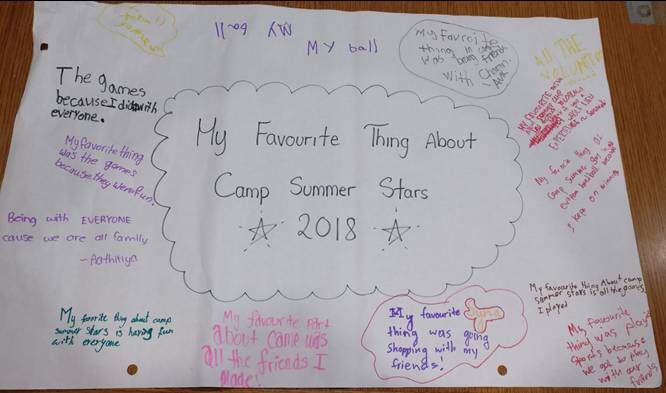 My Favourite Thing About
Camp Summer Stars
2018
My ball
My ball
My Favroite
thing in camp
was being friends
with
All THE
The games
because I did with
everyone.
My favorite thing
was the games
because they were fun.
Being with EVERYONE
cause we are all family
My forite thig about camp
summer stars is having fun
with everyone
My favourite Part
about came was
all the friends I
made!
My favourite
thing was going
shopping with my
friends!
My favourite thing About camp
summer stars is all the games
I played
My favourite
thing was playing
sports because
we got to play
with our
friends
MY FAVOURITE
My favorite thing at
camp summer stars
because
I keep on winning